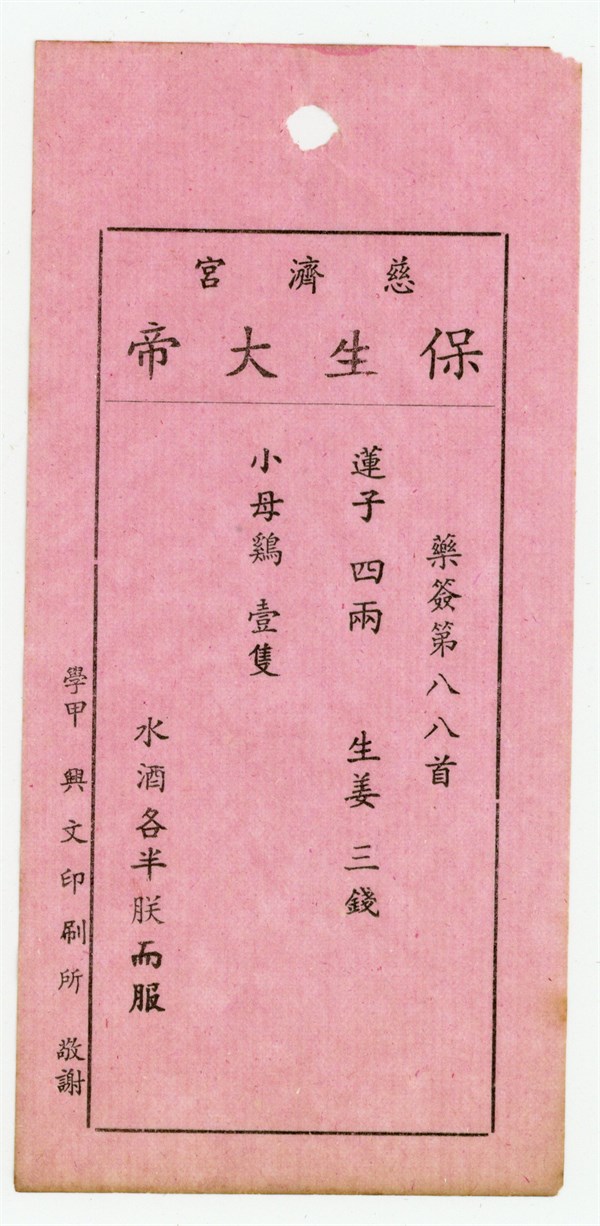 慈濟宮
保生大帝
藥簽第八八首
蓮子 四兩 生姜 三錢
小母鷄 壹隻
水酒各半朕而服
學甲 興文印刷所 敬謝